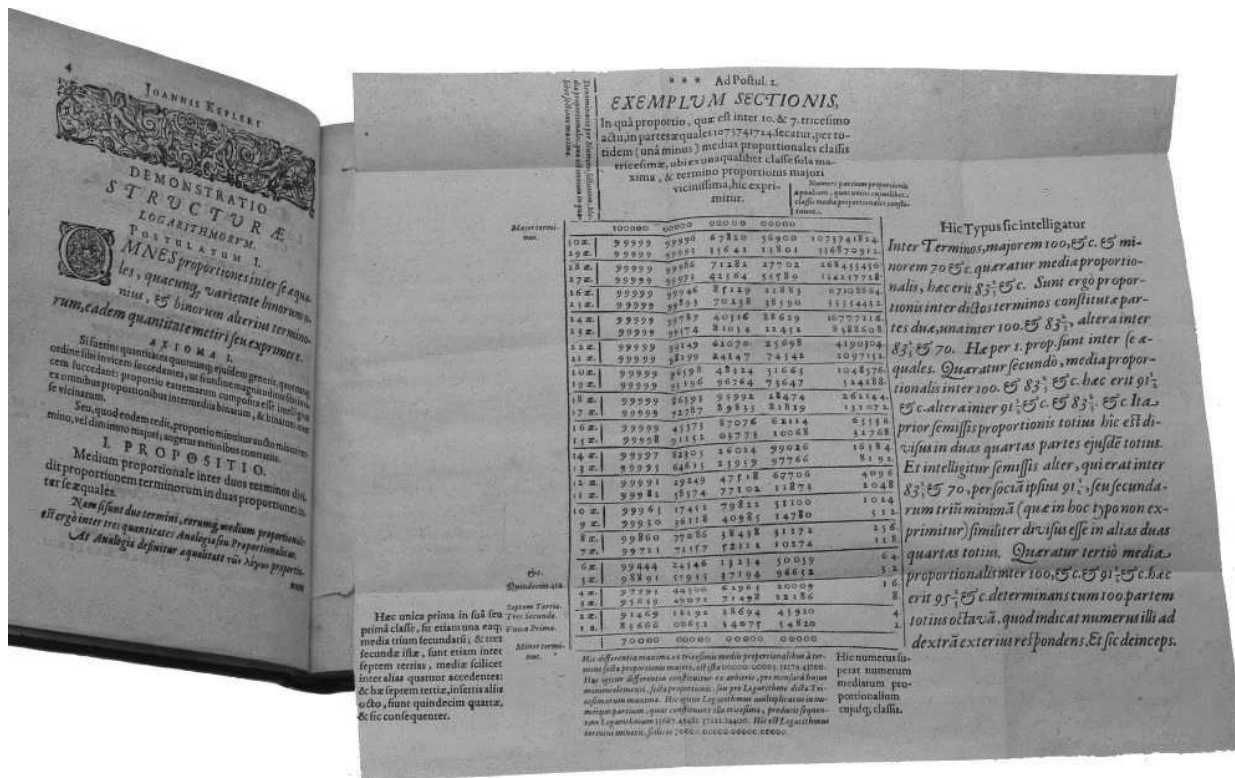 4
JOANNIS KEPLERI
DEMONSTRATIO
STRUCTURÆ
LOGARITHMORUM.
POSTULATUM I.
OMNES proportiones inter se æqua-
les, quacunq; varietate binorum u-
nius, & binorum alterius termino-
rum, eadem quantitate metiri seu exprimere.
AXIOMA I.
Si fuerint quantitates quotcunq; ejusdem generis, quocunq;
ordine sibi invicem succedentes, ut si ordine magnitudinis sibi invi-
cem succedant: proportio extremarum composita esse intelligitur
ex omnibus proportionibus intermediis binarum, & binarum inter
se vicinarum.
Seu, quod eodem redit, proportio minuitur aucto minori ter-
mino, vel diminuto majori; augetur rationibus contrariis.
I. PROPOSITIO.
Medium proportionale inter duos terminos divi-
dit proportionem terminorum in duas proportiones in-
ter se æquales.
Nam si sint duo termini, eorumq; medium proportionale:
est ergò inter tres quantitates Analogia seu Proportionalitas.
At Analogia definitur æqualitate
* * * Ad Postul. 2.
EXEMPLUM SECTIONIS,
In quâ proportio, quæ est inter 10. & 7. tricesimo
actu, in partes æquales 1073741724. secatur, per to-
tidem (unâ minus) medias proportionales classis
tricesimæ, ubi ex unaqualibet classe sola ma-
xima, & termino proportionis majori
vicinissima, hic expri-
mitur.
Major termi-
nus.
100000 00000 00000 00000
30æ. 99999 99996 67820 56900 1073741824.
29æ. 99999 99993 35641 13801 536870912.
28æ. 99999 99986 71282 27702 268435456.
27æ. 99999 99973 42564 55589 134217728.
26æ. 99999 99946 85129 11883 67108864.
25æ. 99999 99893 70258 38590 33554432.
24æ. 99999 99787 40516 88629 16777216.
23æ. 99999 99574 81034 22452 8388608.
22æ. 99999 99149 62070 25698 4194304.
21æ. 99999 98299 24147 74542 2097152.
20æ. 99999 96598 48324 51663 1048576.
19æ. 99999 93196 96764 73647 524288.
18æ. 99999 86393 93992 28474 262144.
17æ. 99999 72787 89835 81819 131072.
16æ. 99999 45575 87076 62114 65536.
15æ. 99998 91152 03773 10068 32768.
14æ. 99997 82305 26024 99026 16384.
13æ. 99995 64615 25959 97766 8192.
12æ. 99991 29249 47518 67706 4096
11æ. 99982 58574 77102 11873 2048
10æ. 99965 17452 79822 51100 1024
9æ. 99930 36118 40985 14780 512.
8æ. 99860 77086 38438 31172 256
7æ. 99721 73557 52112 10274 128.
6æ. 99444 24546 13234 50059 64.
5æ. 98891 57955 37194 96652 32.
4æ. 97795 44506 62963 20009 16.
3æ. 95639 49075 71498 22186 8.
2æ. 91469 12192 28694 43920 4.
1æ. 83666 00265 34075 54820 2.
70000 00000 00000 00000
&c.
Quindecim 4tæ.
Septem Tertiæ.
Tres Secundæ.
Unica Prima.
Minor termi-
nus.
Hæc unica prima in suâ seu
primâ classe, fit etiam una eaq;
media trium secundarū; & tres
secundæ istæ, sunt etiam inter
septem tertias, mediæ scilicet
inter alias quatuor accedentes:
& hæ septem tertiæ, insertis aliis
octo, fiunt quindecim quartæ,
& sic consequenter.
Hic numerus su-
perat numerum
mediarum pro-
portionalium
cujusq; classis.
Hic Typus sic intelligatur
Inter Terminos, majorem 100, &c. & mi-
norem 70 &c. quæratur media proportio-
nalis, hæc erit 83 2/3 &c. Sunt ergò propor-
tionis inter dictos terminos constitutæ par-
tes duæ, una inter 100. & 83 2/3, altera inter
83 2/3 & 70. Hæ per 1. prop. sunt inter se æ-
quales. Quæratur secundò, media propor-
tionalis inter 100. & 83 2/3 &c. hæc erit 91 1/2
&c. altera inter 91 1/2 &c. & 83 2/3 &c Ita
prior semissis proportionis totius hic est di-
visus in duas quartas partes ejusdē totius.
Et intelligitur semissis alter, qui erat inter
83 2/3 & 70, per sociā ipsius 91 1/2, seu secunda-
rum triū minimā (quæ in hoc typo non ex-
primitur) similiter divisus esse in alias duas
quartas totius. Quæratur tertiò media
proportionalis inter 100, &c. & 91 1/2 &c. hæc
erit 95 2/3 &c. determinans cum 100. partem
totius octavā. quod indicat numerus illi ad
dextrā exterius respondens. Et sic deinceps.